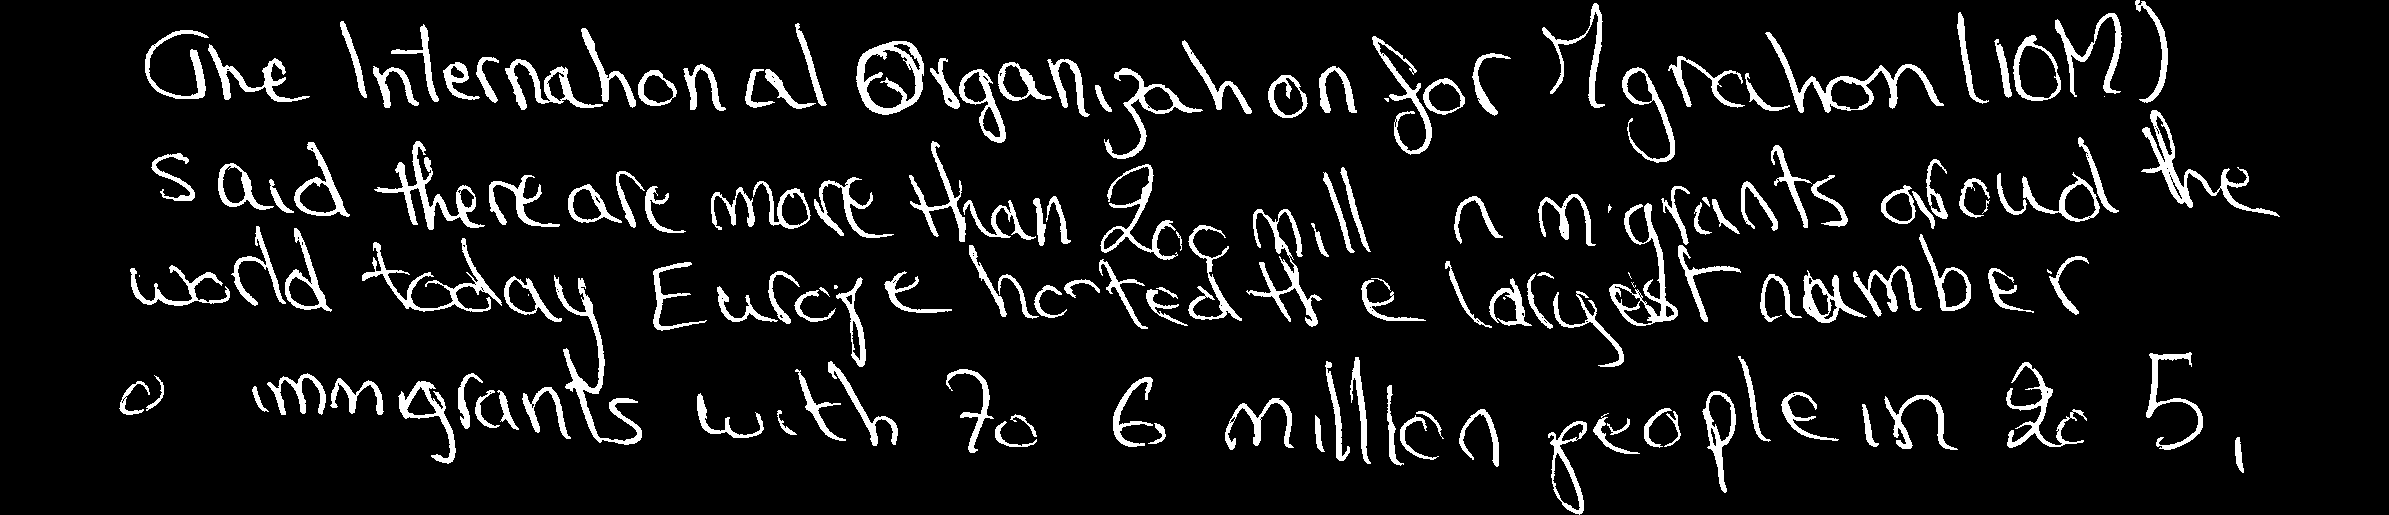 The International Organization for Migration (IOM)
said there are more than 200 million migrants aroud the
world today Europe hosted the largest number
of immigrants with 70 6 million people in 2005,